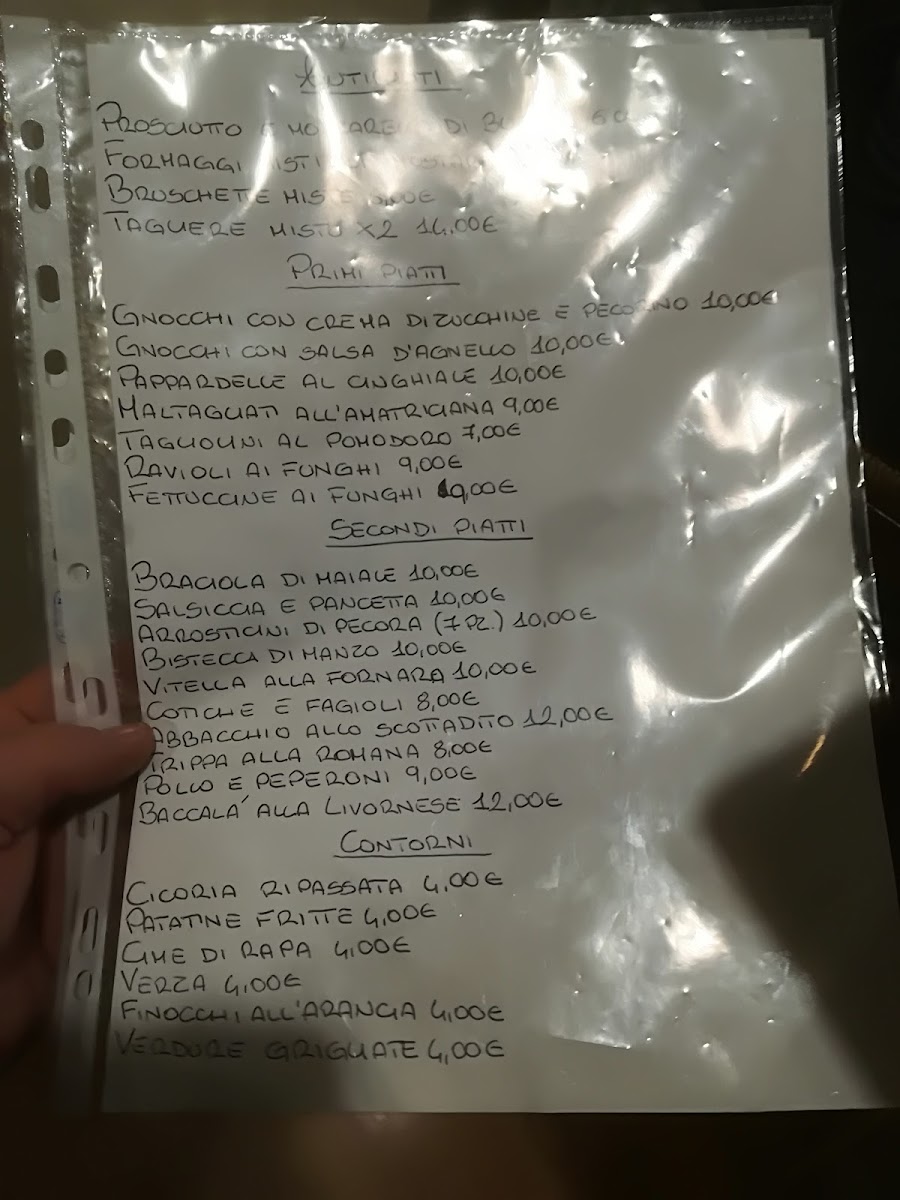 ANTIPASTI
PROSCIUTTO E MOZZARELLA DI
FORMAGGI MISTI
BRUSCHETTE MISTE
TAGLIERE MISTO X2 14,00€
PRIMI PIATTI
GNOCCHI CON CREMA DI ZUCCHINE E PECORINO 10,00€
GNOCCHI CON SALSA D'AGNELLO 10,00€
PAPPARDELLE AL CINGHIALE 10,00€
MALTAGLIATI ALL'AMATRICIANA 9,00€
TAGLIOLINI AL POMODORO 7,00€
RAVIOLI AI FUNGHI 9,00€
FETTUCCINE AI FUNGHI 9,00€
SECONDI PIATTI
BRACIOLA DI MAIALE 10,00€
SALSICCIA E PANCETTA 10,00€
ARROSTICINI DI PECORA (7 PZ.) 10,00€
BISTECCA DI MANZO 10,00€
VITELLA ALLA FORNARA 10,00€
COTICHE E FAGIOLI 8,00€
ABBACCHIO ALLO SCOTTADITO 12,00€
TRIPPA ALLA ROMANA 8,00€
POLLO E PEPERONI 9,00€
BACCALA' ALLA LIVORNESE 12,00€
CONTORNI
CICORIA RIPASSATA 4,00€
PATATINE FRITTE 4,00€
CIME DI RAPA 4,00€
VERZA 4,00€
FINOCCHI ALL'ARANCIA 4,00€
VERDURE GRIGLIATE 4,00€